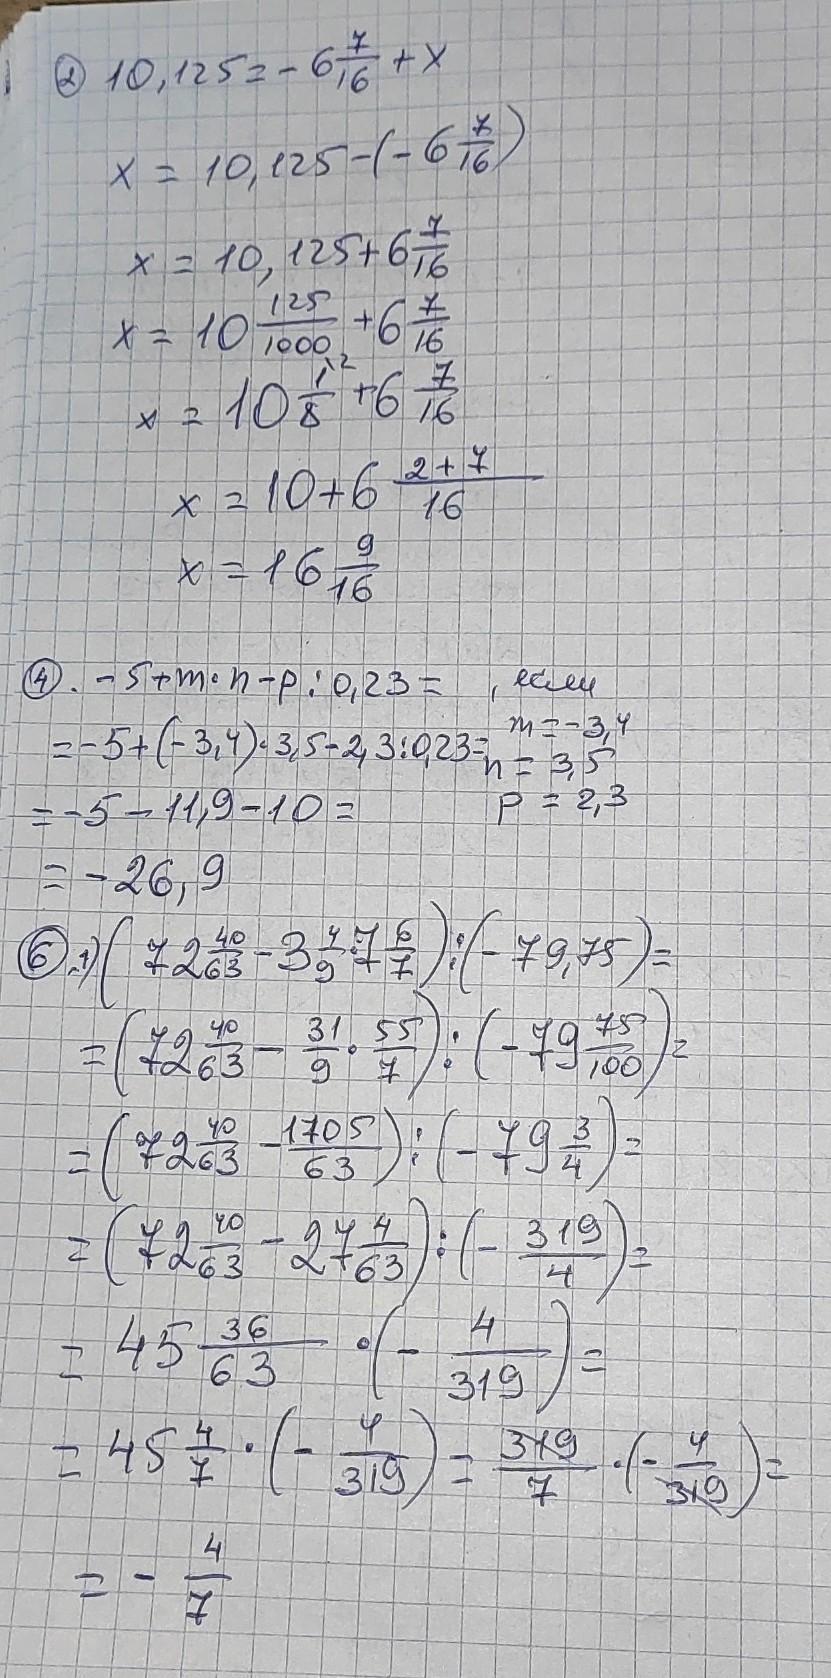 ② 10,125 = - 6 7/16 + x
x = 10,125 - (- 6 7/16)
x = 10,125 + 6 7/16
x = 10 125/1000 + 6 7/16
x = 10 1\2/8 + 6 7/16
x = 10 + 6 (2+7)/16
x = 16 9/16
④. -5+m·n-p:0,23= , если
m = -3,4
= -5+(-3,4)·3,5-2,3:0,23=
n = 3,5
= -5 - 11,9 - 10 =
p = 2,3
= -26,9
⑥.1) (72 40/63 - 3 4/9 · 7 6/7) : (-79,75) =
= (72 40/63 - 31/9 · 55/7) : (-79 75/100) =
= (72 40/63 - 1705/63) : (-79 3/4) =
= (72 40/63 - 27 4/63) : (- 319/4) =
= 45 36/63 · (- 4/319) =
= 45 4/7 · (- 4/319) = 319/7 · (- 4/319) =
= - 4/7